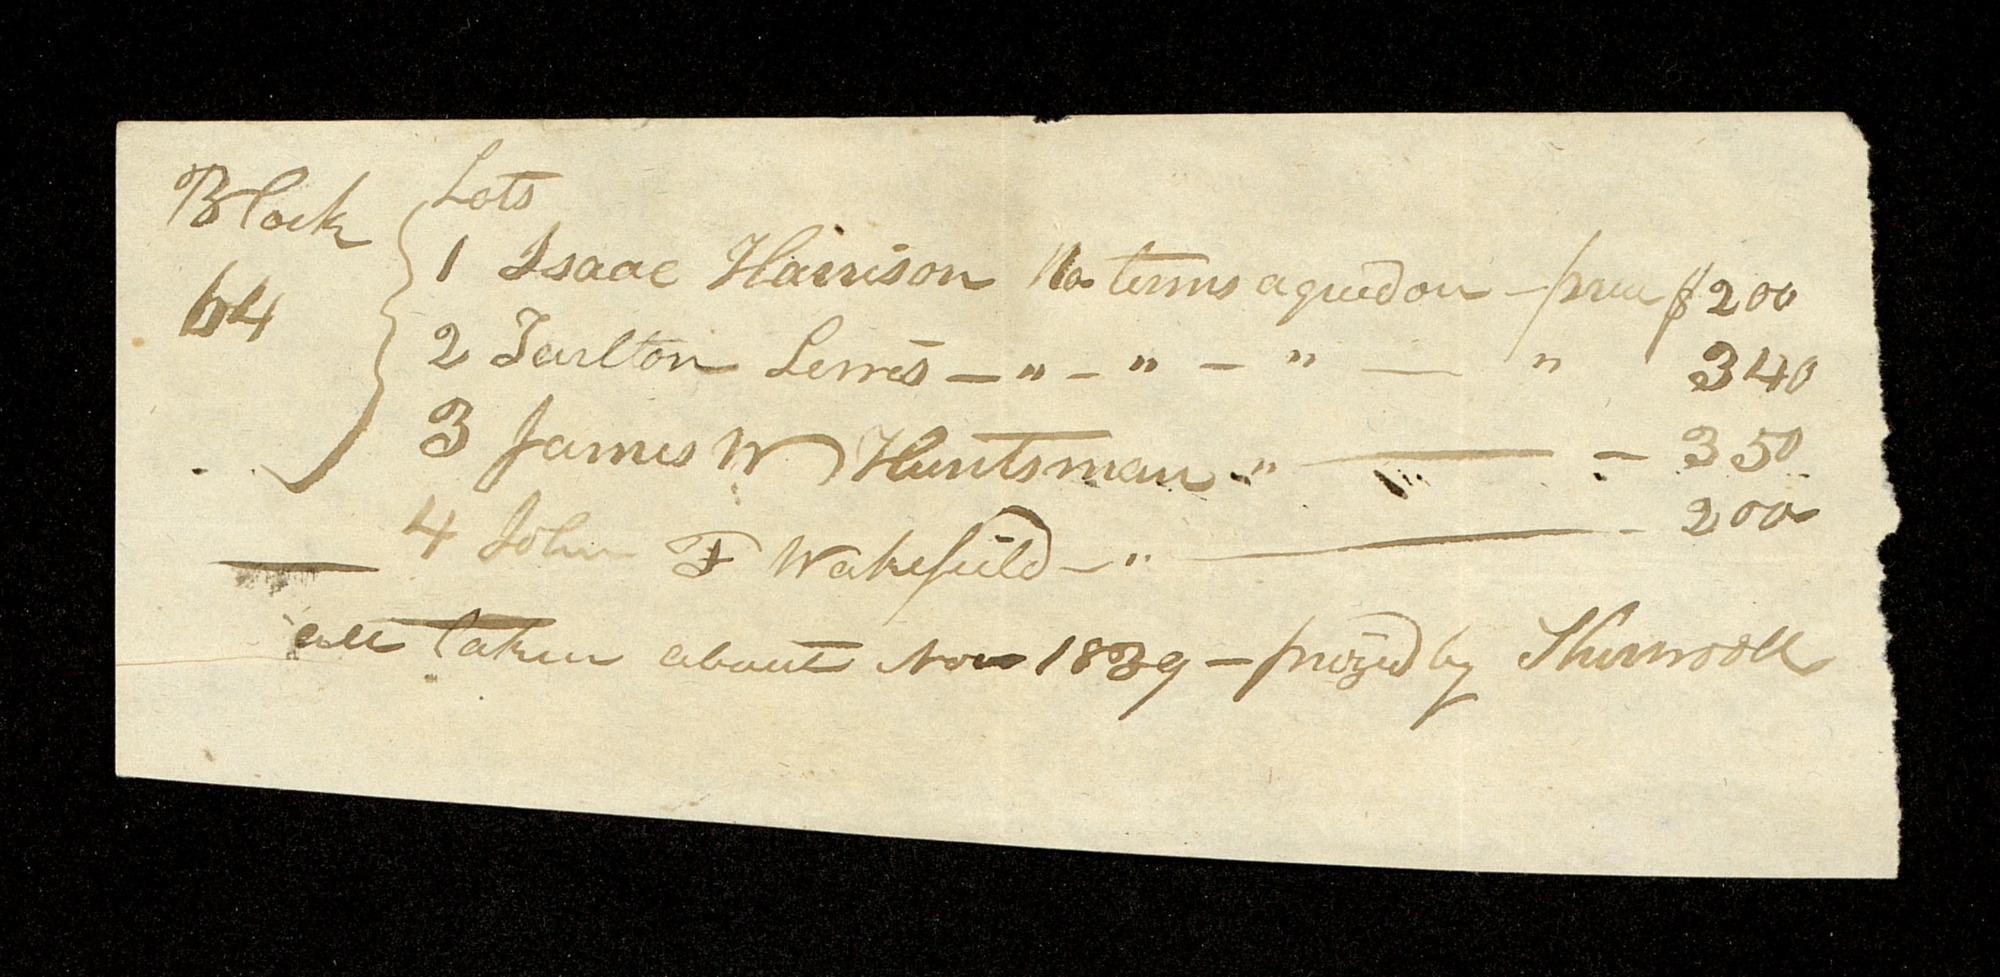 Block
64
Lots
1 Isaac Harrison No terms agreed on - price $200
2 Tarlton Lewis - " - " - " — " 340
3 James W Huntsman " — - 350
4 John F Wakefield - " — - 200
all taken about Nov 1839 - prized by Sherwood